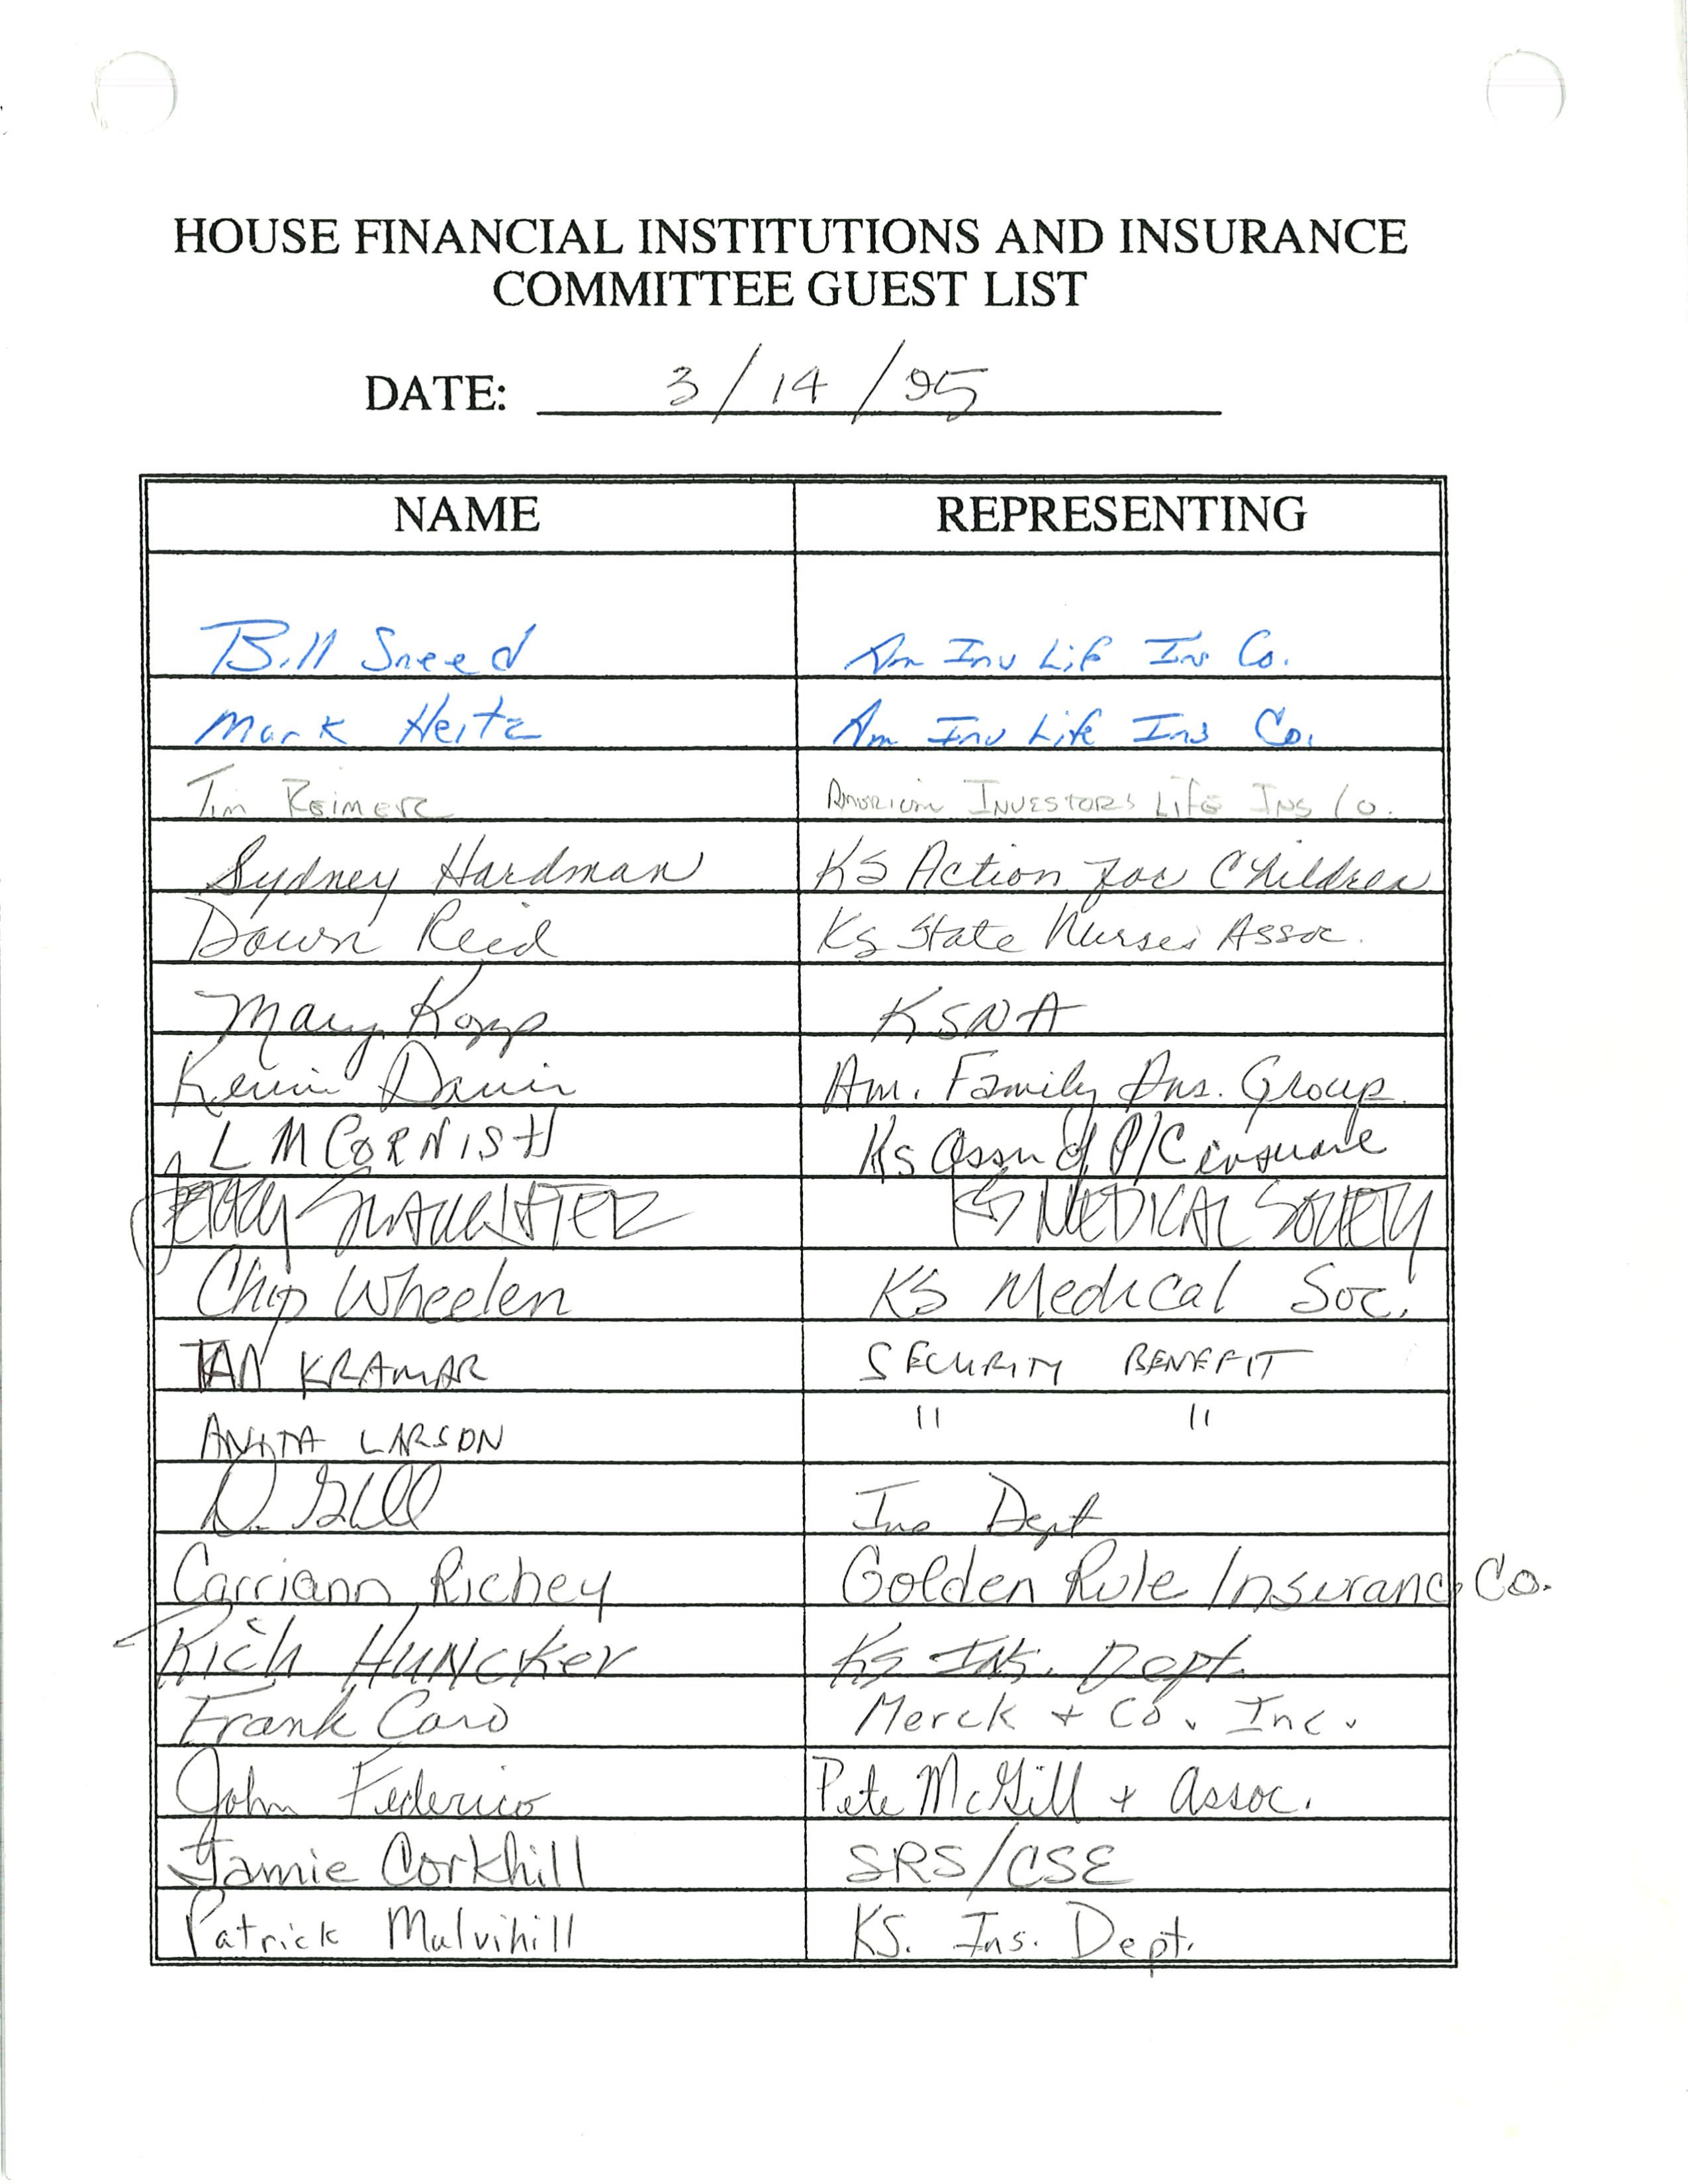 HOUSE FINANCIAL INSTITUTIONS AND INSURANCE
COMMITTEE GUEST LIST
DATE: 3/14/95
NAME REPRESENTING
Bill Sneed Am Inv Life Ins Co.
Mark Heitz Am Inv Life Ins Co.
Tim Reimer American Investors Life Ins Co.
Sydney Hardman KS Action for Children
Dawn Reid Ks State Nurses Assoc.
Mary Kopp KSNA
Kevin Davis Am. Family Ins. Group
L M CORNISH Ks Assn of P/C
JERRY SLAUGHTER KS MEDICAL SOCIETY
Chip Wheelen KS Medical Soc.
KRAMAR SECURITY BENEFIT
ANITA LARSON " "
D. Gill Ins Dept
Carriann Richey Golden Rule Insurance Co.
Rich HUNCKer KS INS. Dept.
Frank Caro Merck + Co. Inc.
John Federico Pete McGill + Assoc.
Jamie Corkhill SRS/CSE
Patrick Mulvihill KS. Ins. Dept.